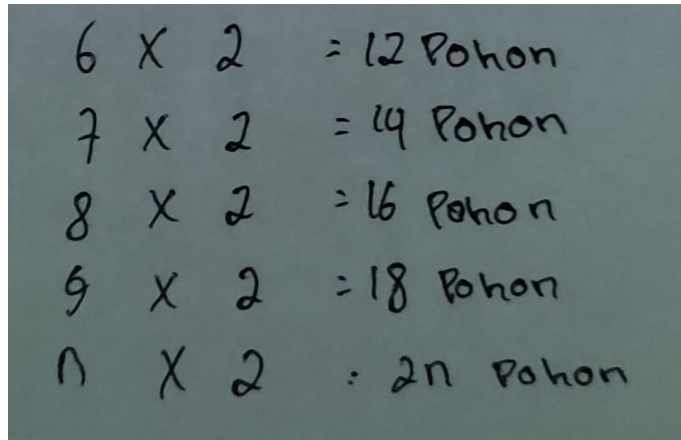 6 X 2 = 12 Pohon
7 X 2 = 14 Pohon
8 X 2 = 16 Pohon
9 X 2 = 18 Pohon
n X 2 : 2n Pohon